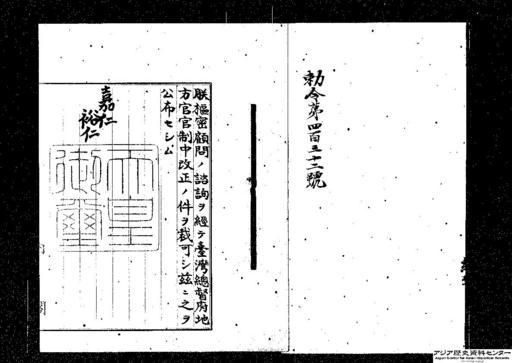 勅令第四百三十二號
朕樞密顧問ノ諮詢ヲ經テ臺灣總督府地
方官官制中改正ノ件ヲ裁可シ茲ニ之ヲ
公布セシム
嘉仁
裕仁
天皇
御璽
アジア歴史資料センター
Japan Center for Asian Historical Records